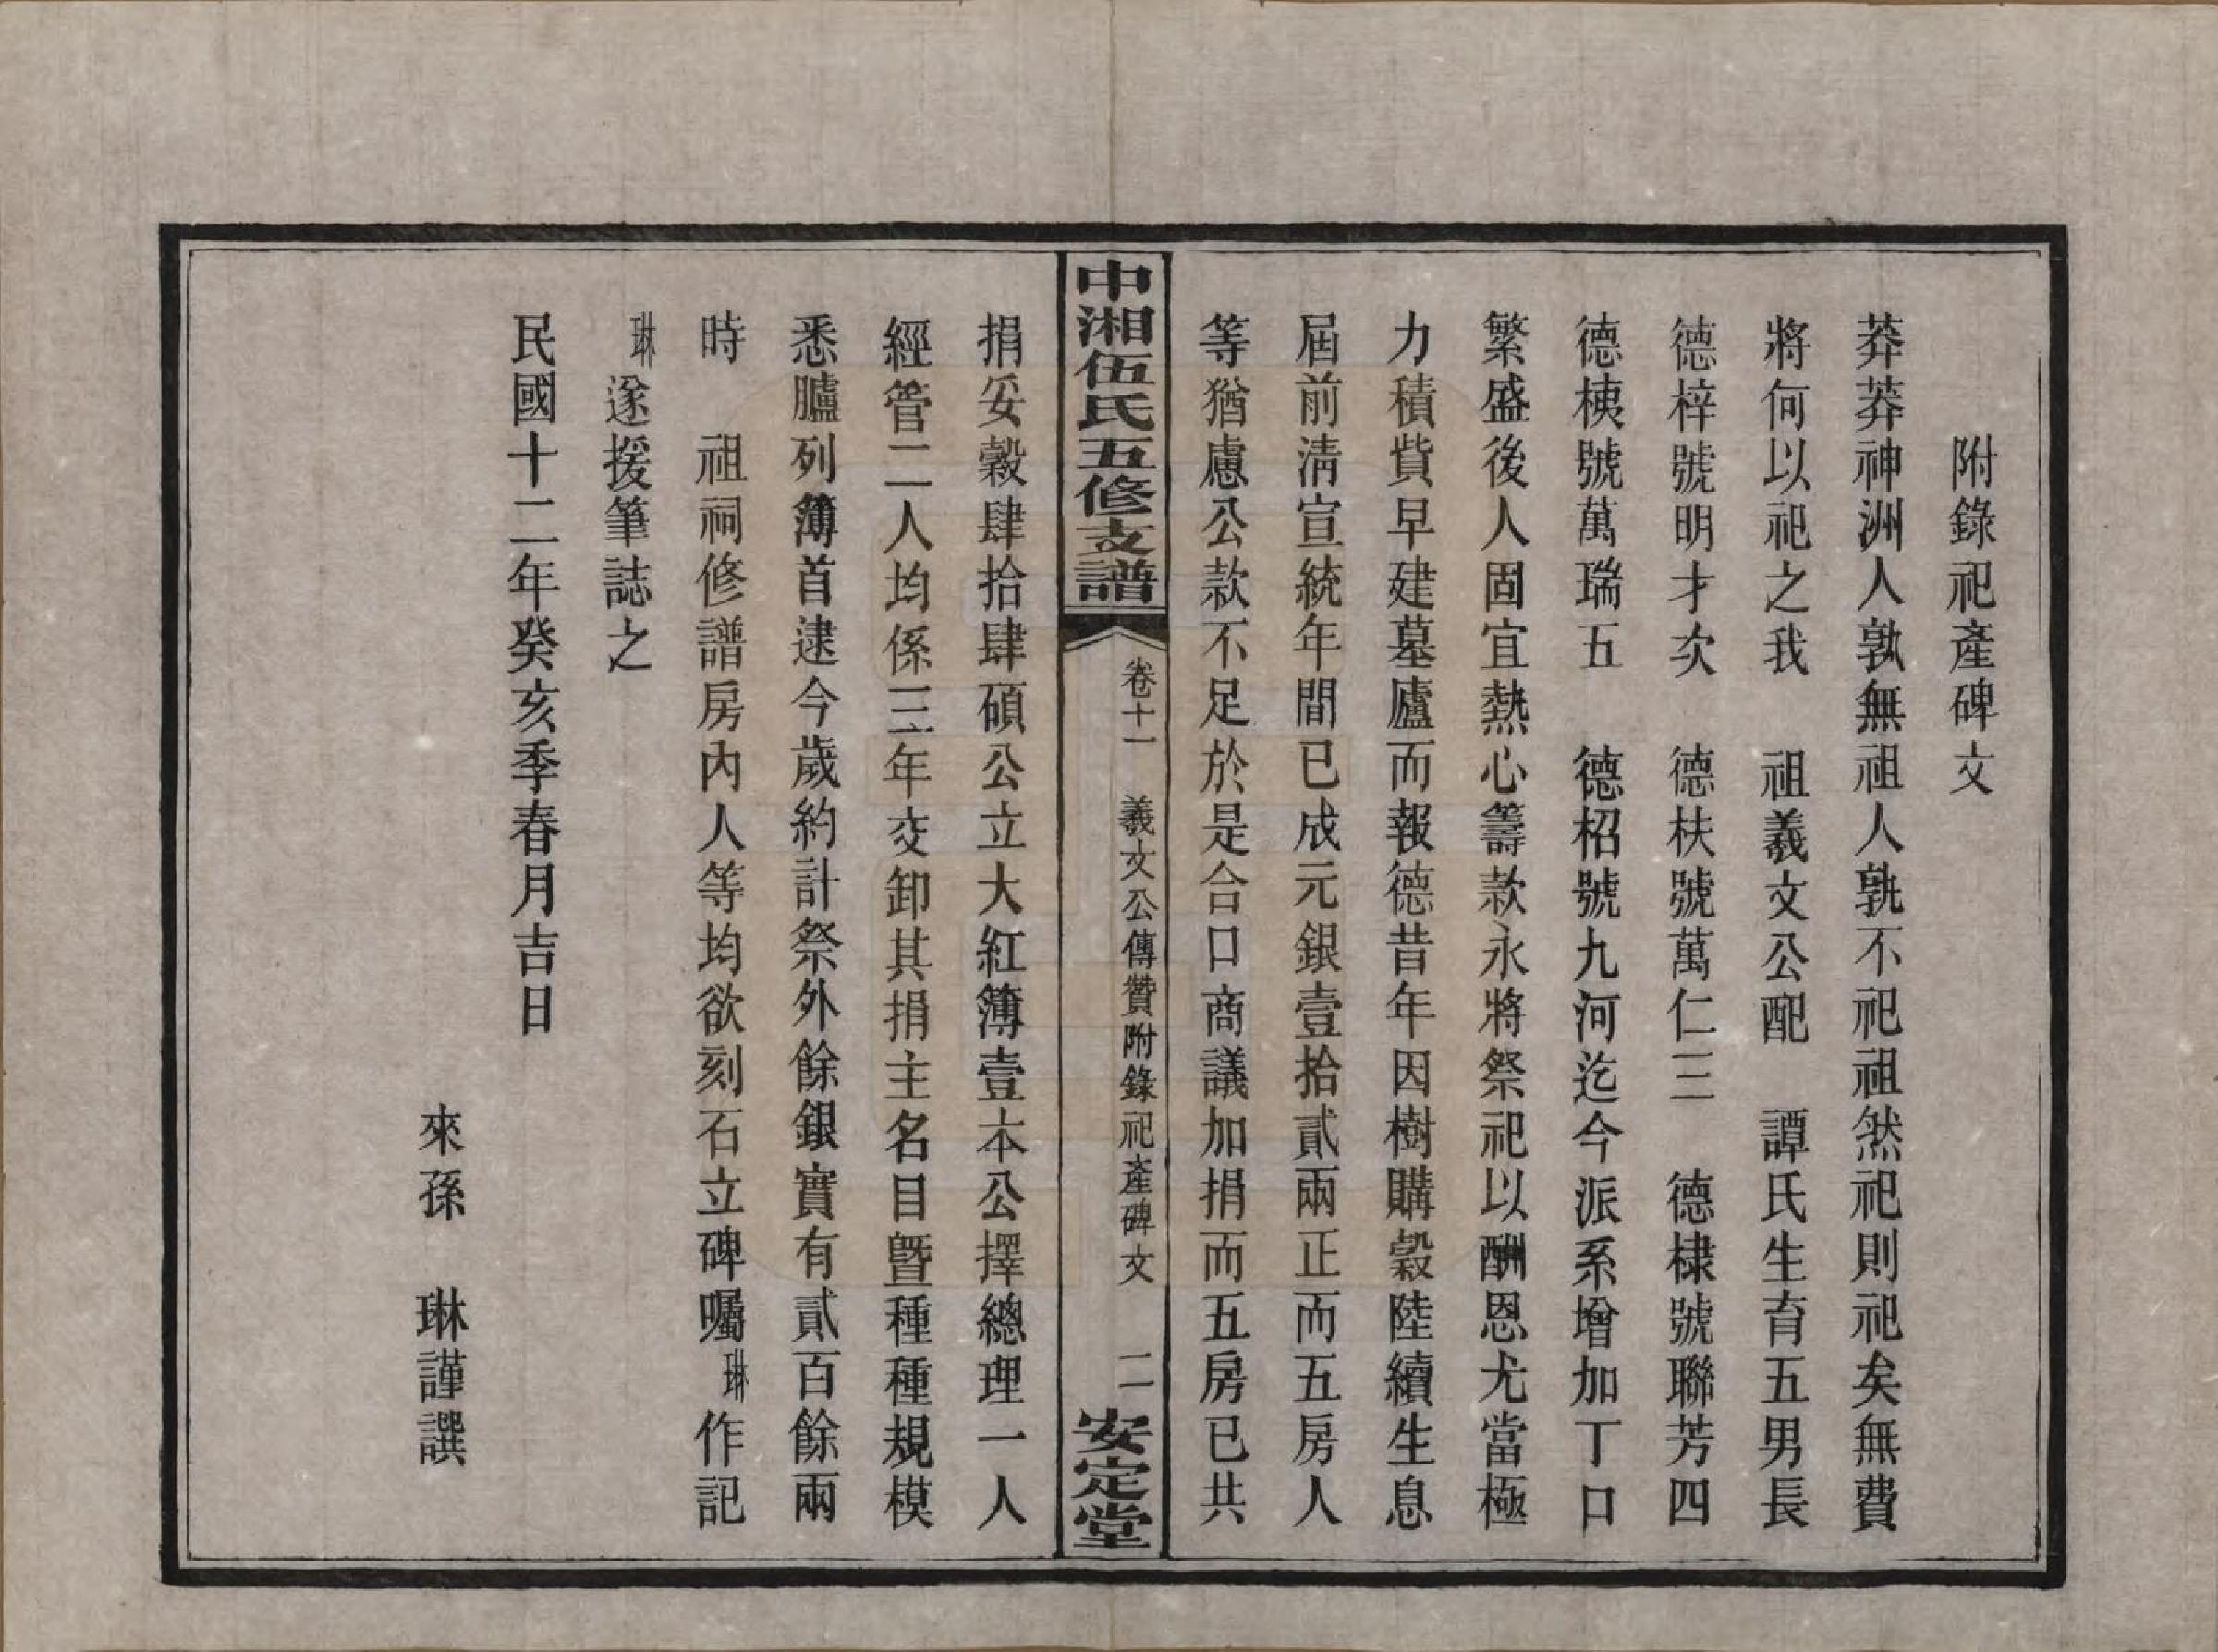 附錄祀產碑文
莽莽神洲人孰無祖人孰不祀祖然祀則祀矣無費
將何以祀之我　祖羲文公配　譚氏生育五男長
德梓號明才次　德枎號萬仁三　德棣號聯芳四
德桋號萬瑞五　德柖號九河迄今派系增加丁口
繁盛後人固宜熱心籌款永將祭祀以酬恩尤當極
力積貲早建墓廬而報德昔年因樹購穀陸續生息
屆前清宣統年間已成元銀壹拾貳兩正而五房人
等猶慮公款不足於是合口商議加捐而五房已共
中湘伍氏五修支譜
卷十一　羲文公傳贊附錄祀產碑文　二
安定堂
捐妥穀肆拾肆碩公立大紅簿壹本公擇總理一人
經管二人均係三年交卸其捐主名目曁種種規模
悉臚列簿首逮今歲約計祭外餘銀實有貳百餘兩
時　祖祠修譜房內人等均欲刻石立碑囑琳作記
琳遂援筆誌之
民國十二年癸亥季春月吉日
來孫　琳謹譔